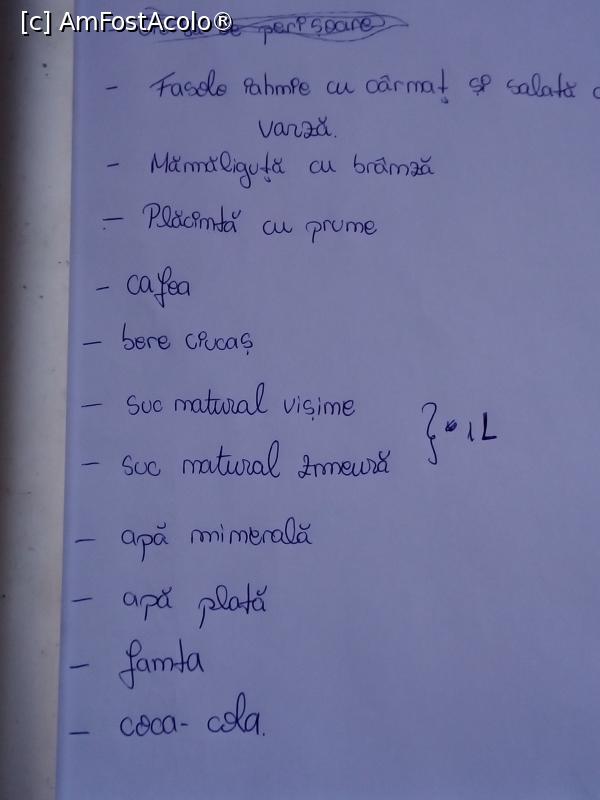 [c] AmFostAcolo®
perisoare
- Fasole iahnie cu cârnaț și salată
varză.
- Mămăliguță cu brânză
- Plăcintă cu prune
- cafea
- bere ciucaș
- suc natural vișine
- suc natural zmeură
} 1L
- apă minerală
- apă plată
- fanta
- coca-cola.